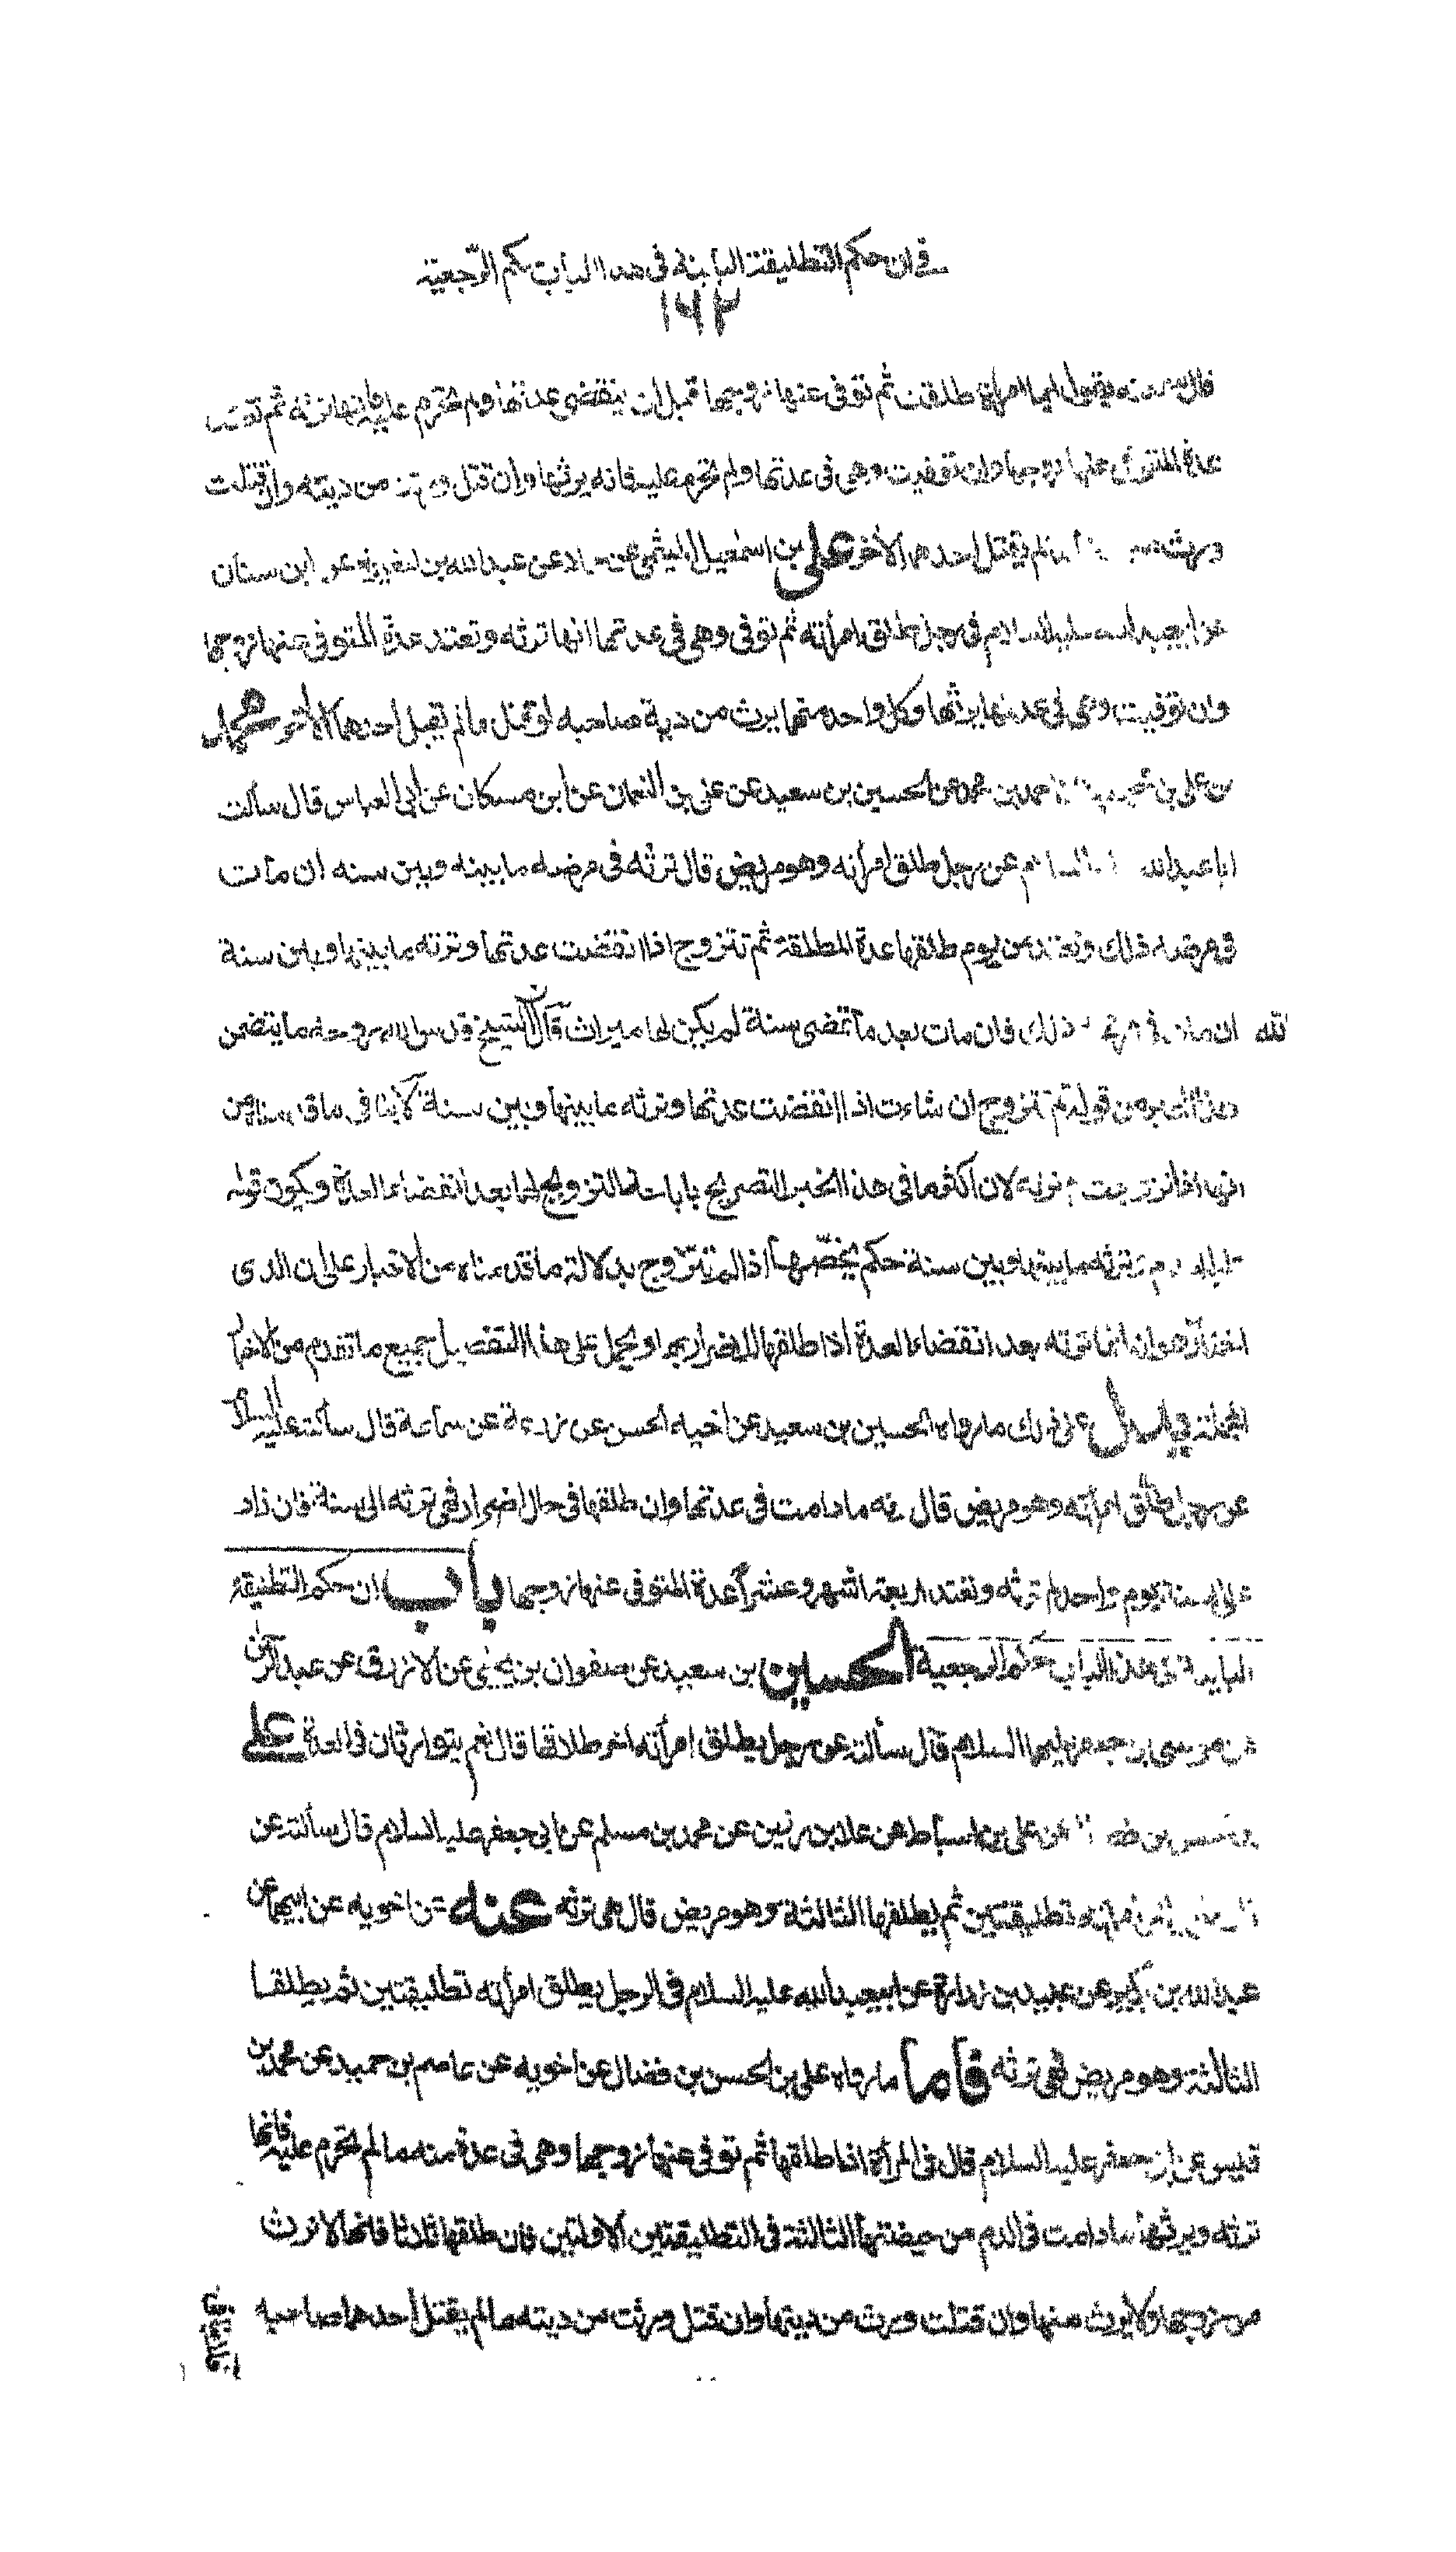 في ان حكم التطليقة الباينة في هذا الباب حكم الرجعية
١٦٢
قال يقول ايما امرأة طلقت ثم توفى عنها زوجها قبل ان ينقضي عدتها ولم تحرم عليه فانها ترثه ثم تعتد
عدة المتوفى عنها زوجها وان توفيت وهي في عدتها ولم تحرم عليه فانه يرثها وان قتل من ديته وان قتلت
ورث ما لم يقتل احدهما الآخر علي بن اسمعيل الميثمي عن حماد عن عبد الله بن المغيرة عن ابن سنان
عن ابيعبد الله عليه السلام في رجل طلق امرأته ثم توفى وهي في عدتها انها ترثه وتعتد عدة المتوفى عنها زوجها
وان توفيت وهي في عدتها يرثها وكل واحد منهما يرث من دية صاحبه لو قتل ما لم يقتل احدهما الآخر محمد
بن علي بن محبوب عن احمد بن محمد عن الحسين بن سعيد عن علي بن النعمان عن ابن مسكان عن ابي العباس قال سألت
ابا عبد الله السلام عن رجل طلق امرأته وهو مريض قال ترثه في مرضه ما بينه وبين سنه ان مات
في مرضه ذلك وتعتد من يوم طلقها عدة المطلقة ثم تتزوج اذا انقضت عدتها وترثه ما بينها وبين سنة
ان مات في مرضه ذلك فان مات بعد ما تمضى سنة لم يكن لها ميراث قال الشيخ قدس الله روحه ما يتضمن
هذا الخبر من قوله ثم تتزوج ان شاءت اذا انقضت عدتها وترثه ما بينها وبين سنة لا ينافي ما قدمناه من
انها اذا تزوجت لم ترثه لان اكثر ما في هذا الخبر التصريح باباحة التزويج لها بعد انقضاء العدة ويكون قوله
عليه السلام ترثه ما بينها وبين سنة حكم يخصها اذا لم تتزوج بدلالة ما قدمناه من الاخبار على ان الذي
اختاره هو انه انما ترثه بعد انقضاء العدة اذا طلقها للاضرار بها ويحمل على هذا التفصيل جميع ما تقدم من الاخبار
المجملة يدل على ذلك ما رواه الحسين بن سعيد عن اخيه الحسن عن زرعة عن سماعة قال سألته عليه السلام
عن رجل طلق امرأته وهو مريض قال ترثه ما دامت في عدتها وان طلقها في حال اضرار فهي ترثه الى سنة فان زاد
على السنة يوم واحد لم ترثه وتعتد اربعة اشهر وعشراً عدة المتوفى عنها زوجها باب ان حكم التطليقة
الباينة في هذا الباب حكم الرجعية الحسين بن سعيد عن صفوان بن يحيى عن الازرق عن عبد الرحمن
عن موسى بن جعفر عليهما السلام قال سألته عن رجل يطلق امرأته آخر طلاقها قال نعم يتوارثان في العدة علي
بن الحسن بن فضال عن علي بن اسباط عن علا بن رزين عن محمد بن مسلم عن ابي جعفر عليه السلام قال سألته عن
امرأته تطليقتين ثم يطلقها الثالثة وهو مريض قال هي ترثه عنه عن اخويه عن ابيهما عن
عبد الله بن بكير عن عبيد بن زرارة عن ابيعبد الله عليه السلام في الرجل يطلق امرأته تطليقتين ثم يطلقها
الثالثة وهو مريض فهي ترثه فاما ما رواه علي بن الحسن بن فضال عن اخويه عن عاصم بن حميد عن محمد بن
قيس عن ابي جعفر عليه السلام قال في المرأة اذا طلقها ثم توفى عنها زوجها وهي في عدة منه ما لم تحرم عليه فانها
ترثه ويرثها ما دامت في الدم من حيضتها الثالثة في التطليقتين الاولتين فان طلقها ثلاثا فانها لا ترث
من زوجها ولا يرث منها وان قتلت ورث من ديتها وان قتل ورثت من ديته ما لم يقتل احدهما صاحبه